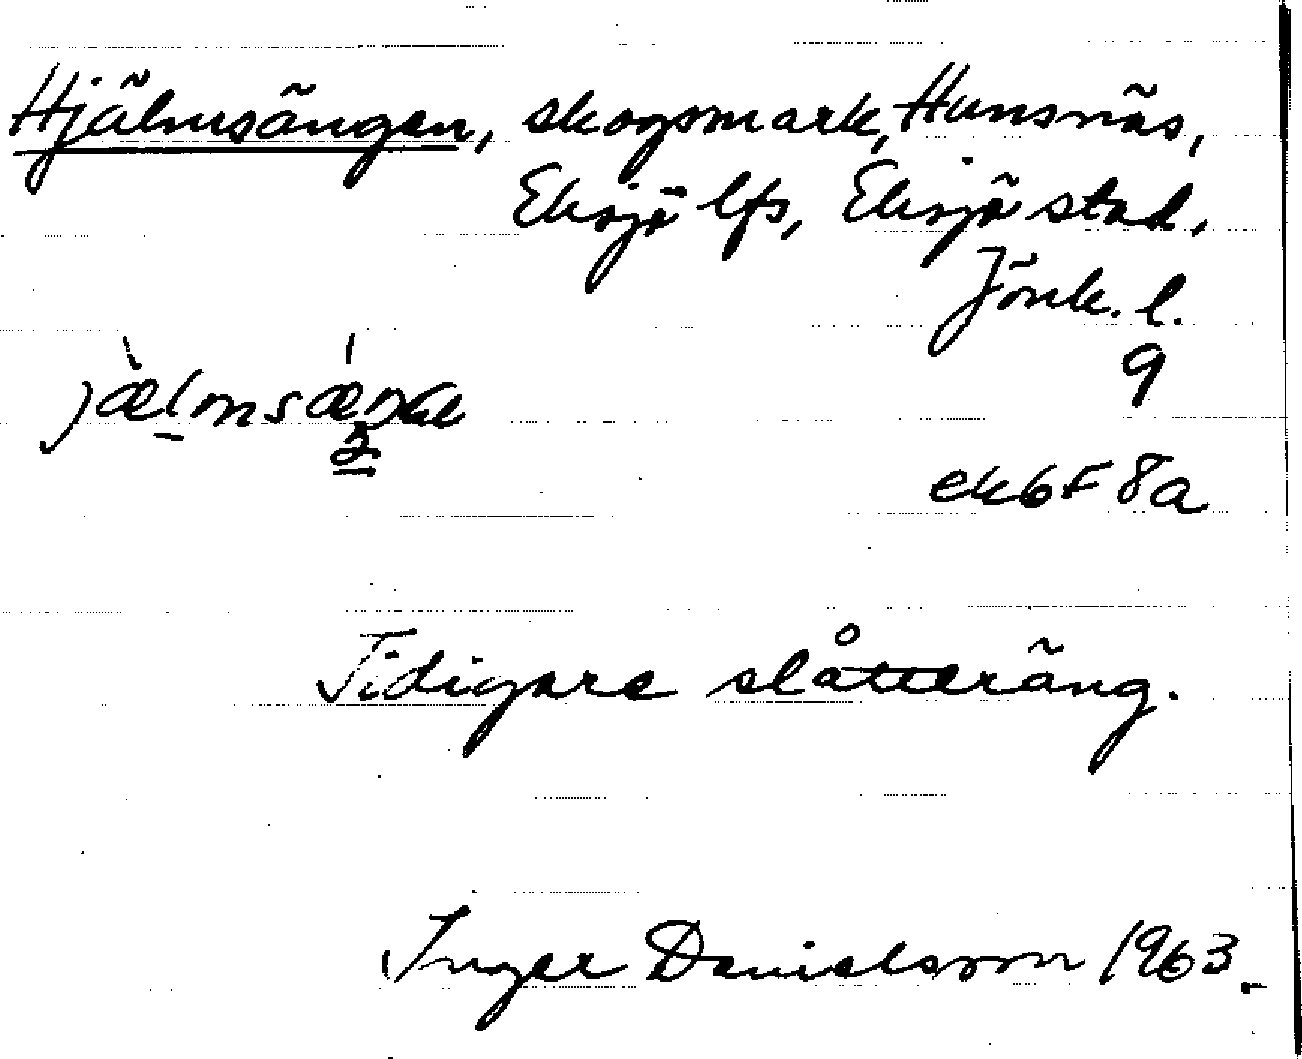 Hjälmsängen, skogsmark, Hunsnäs,
Eksjö lfs, Eksjö stad,
Jönk. l.
9
ek 6F 8a
Tidigare slåtteräng.
Inger Danielsson 1963.